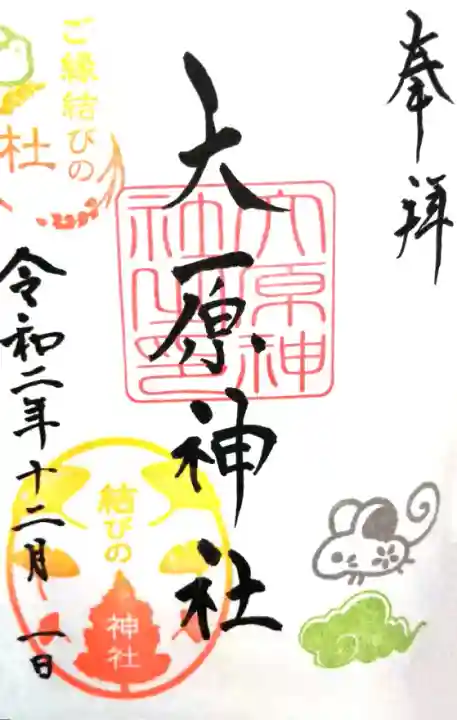 奉拝
大原神社
大原神
社之印
ご縁結びの
杜
令和二年十二月一日
結びの
神社